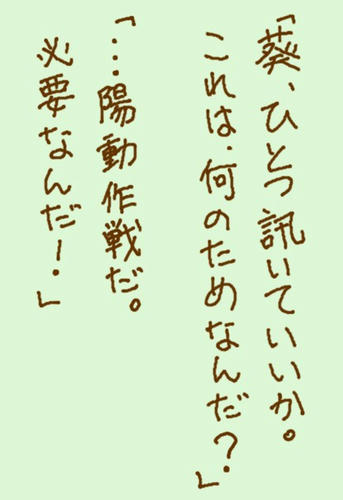 「葵、ひとつ訊いていいか。
これは、何のためなんだ?」
「…陽動作戦だ。
必要なんだー.」